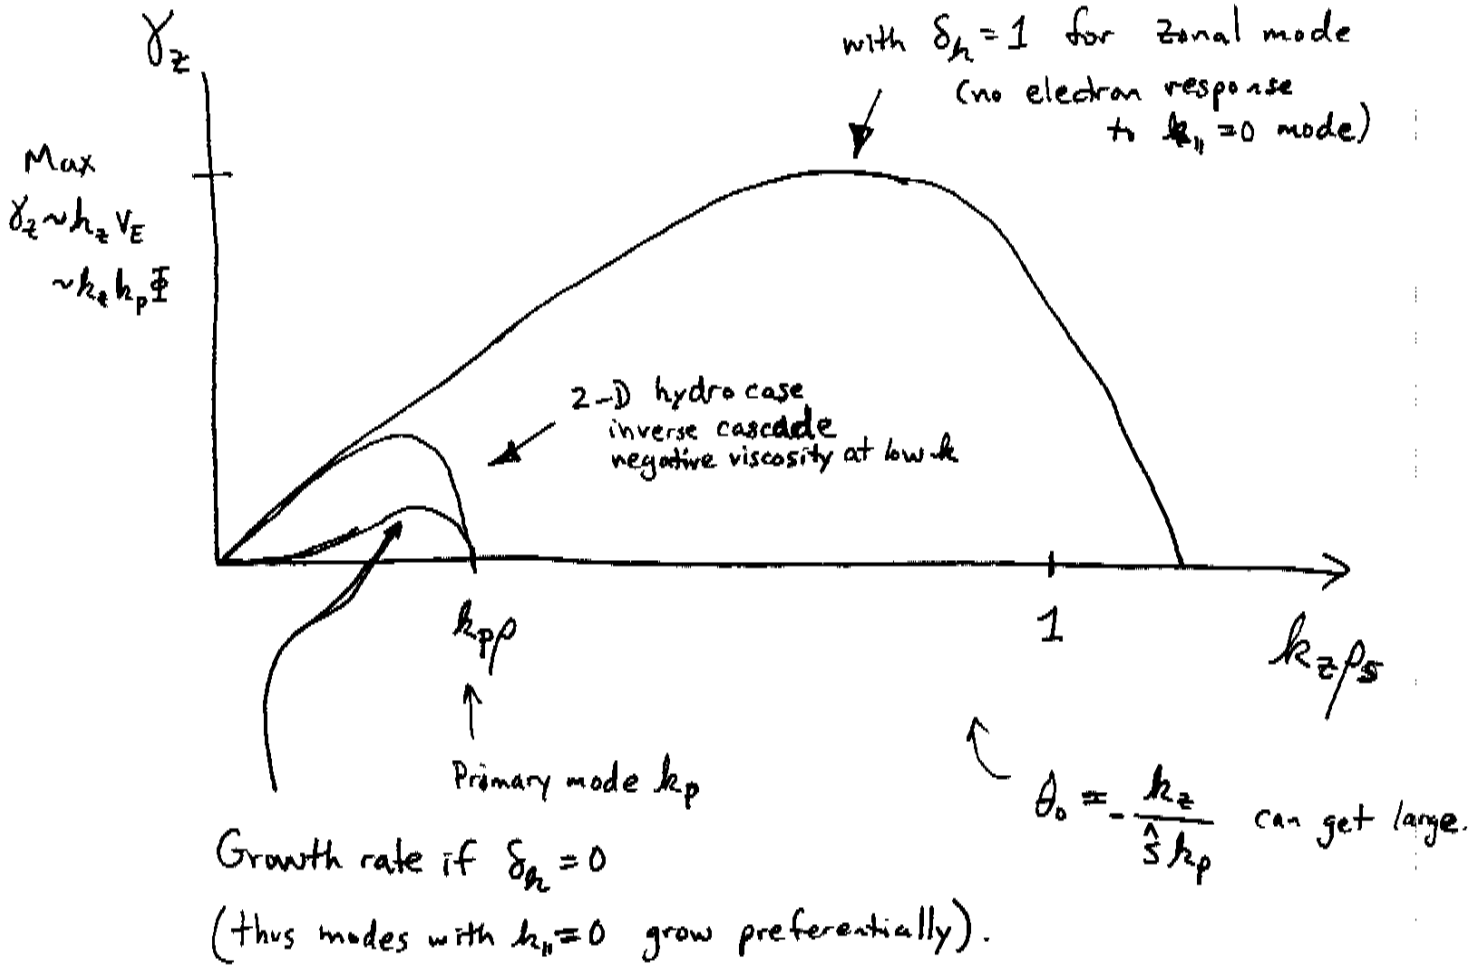 γ_z
with δ_k = 1 for zonal mode
(no electron response
to k_∥ = 0 mode)
Max
γ_z ~ k_z V_E
~ k_z k_p Φ
2-D hydro case
inverse cascade
negative viscosity at low-k
k_p ρ
1
k_z ρ_s
Primary mode k_p
θ_0 = - k_z / ŝ k_p can get large.
Growth rate if δ_k = 0
(thus modes with k_∥ = 0 grow preferentially).